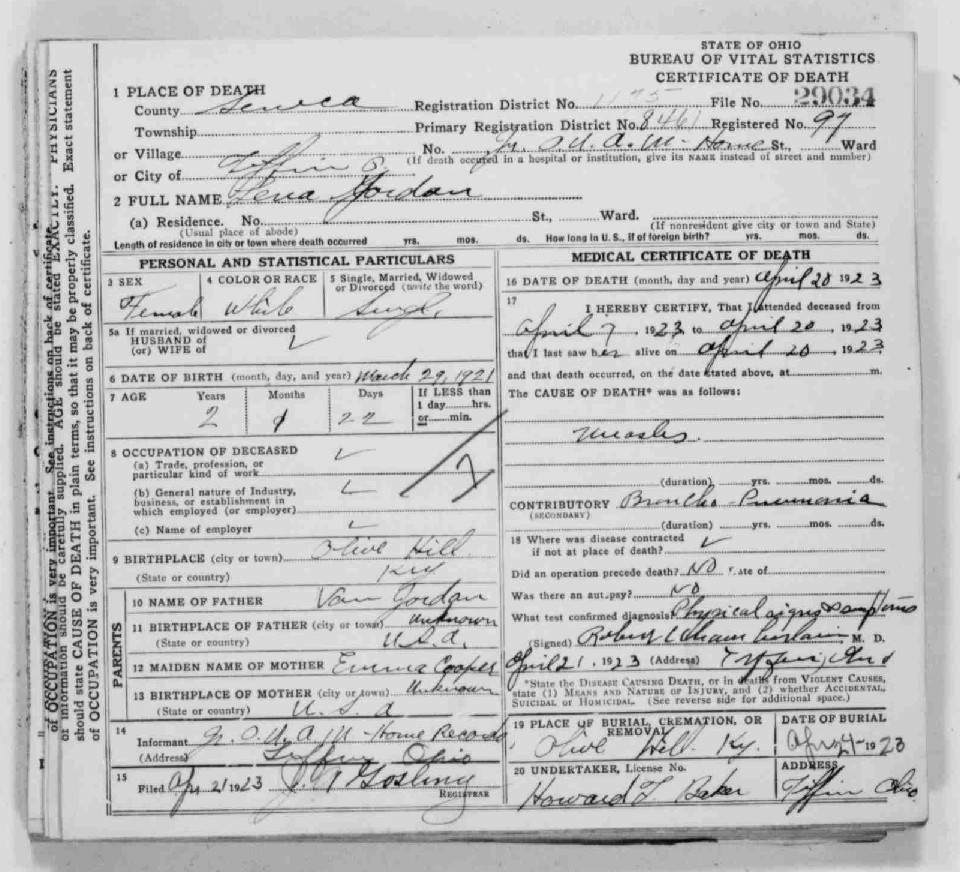 STATE OF OHIO
BUREAU OF VITAL STATISTICS
CERTIFICATE OF DEATH
1 PLACE OF DEATH
County Seneca Registration District No. 1175 File No. 29034
Township Primary Registration District No. 8461 Registered No. 97
or Village No. Jr. O.U.A.M. Home St., Ward
(If death occured in a hospital or institution, give its NAME instead of street and number)
or City of Tiffin O.
2 FULL NAME Lena Jordan
(a) Residence. No. St., Ward.
(Usual place of abode) (If nonresident give city or town and State)
Length of residence in city or town where death occurred yrs. mos. ds. How long in U. S., if of foreign birth? yrs. mos. ds.
PERSONAL AND STATISTICAL PARTICULARS
3 SEX 4 COLOR OR RACE 5 Single, Married, Widowed
or Divorced (write the word)
Female White Single
5a If married, widowed or divorced
HUSBAND of
(or) WIFE of
6 DATE OF BIRTH (month, day, and year) March 29, 1921
7 AGE Years Months Days If LESS than
1 day hrs.
or min.
2 1 22
8 OCCUPATION OF DECEASED
(a) Trade, profession, or
particular kind of work
(b) General nature of Industry,
business, or establishment in
which employed (or employer)
(c) Name of employer
9 BIRTHPLACE (city or town) Olive Hill
(State or country) Ky
PARENTS
10 NAME OF FATHER Van Jordan
11 BIRTHPLACE OF FATHER (city or town) Unknown
(State or country) U.S.A.
12 MAIDEN NAME OF MOTHER Emma Cooper
13 BIRTHPLACE OF MOTHER (city or town) Unknown
(State or country) U.S.A
14
Informant Jr. O.U.A.M. Home Records
(Address) Tiffin Ohio
15
Filed Ap 21 1923 Gosling
REGISTRAR
MEDICAL CERTIFICATE OF DEATH
16 DATE OF DEATH (month, day and year) April 20 1923
17
I HEREBY CERTIFY, That I attended deceased from
April 7, 1923 to April 20, 1923
that I last saw her alive on April 20, 1923
and that death occurred, on the date stated above, at m.
The CAUSE OF DEATH* was as follows:
Measles.
(duration) yrs. mos. ds.
CONTRIBUTORY Broncho-Pneumonia
(SECONDARY)
(duration) yrs. mos. ds.
18 Where was disease contracted
if not at place of death?
Did an operation precede death? No Date of
Was there an autopsy? No
What test confirmed diagnosis? Physical signs & symptoms
(Signed) Robert Chamberlain M. D.
April 21, 1923 (Address) Tiffin, Ohio
*State the DISEASE CAUSING DEATH, or in deaths from VIOLENT CAUSES,
state (1) MEANS AND NATURE OF INJURY, and (2) whether ACCIDENTAL,
SUICIDAL or HOMICIDAL. (See reverse side for additional space.)
19 PLACE OF BURIAL, CREMATION, OR
REMOVAL
Olive Hill Ky.
DATE OF BURIAL
Apr 24 1923
20 UNDERTAKER, License No.
Howard T. Baker
ADDRESS
Tiffin Ohio
information should be carefully supplied. AGE should be stated EXACTLY. PHYSICIANS
should state CAUSE OF DEATH in plain terms, so that it may be properly classified. Exact statement
of OCCUPATION is very important. See instructions on back of certificate.